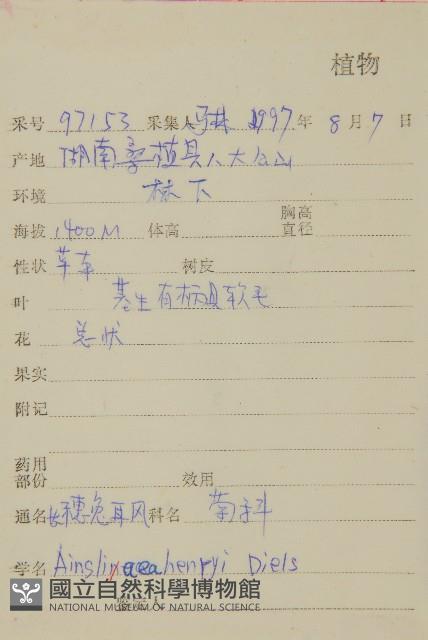 植物
采号 97153 采集人 马林 1997年 8月 7日
产地 湖南桑植县八大公山
环境 林下
海拔 1400M 体高 胸高直径
性状 草本 树皮
叶 基生有柄具软毛
花 总状
果实
附记
药用部份 效用
通名 长穗兔耳风 科名 菊科
学名 Ainsliaea henryi Diels
國立自然科學博物館
NATIONAL MUSEUM OF NATURAL SCIENCE